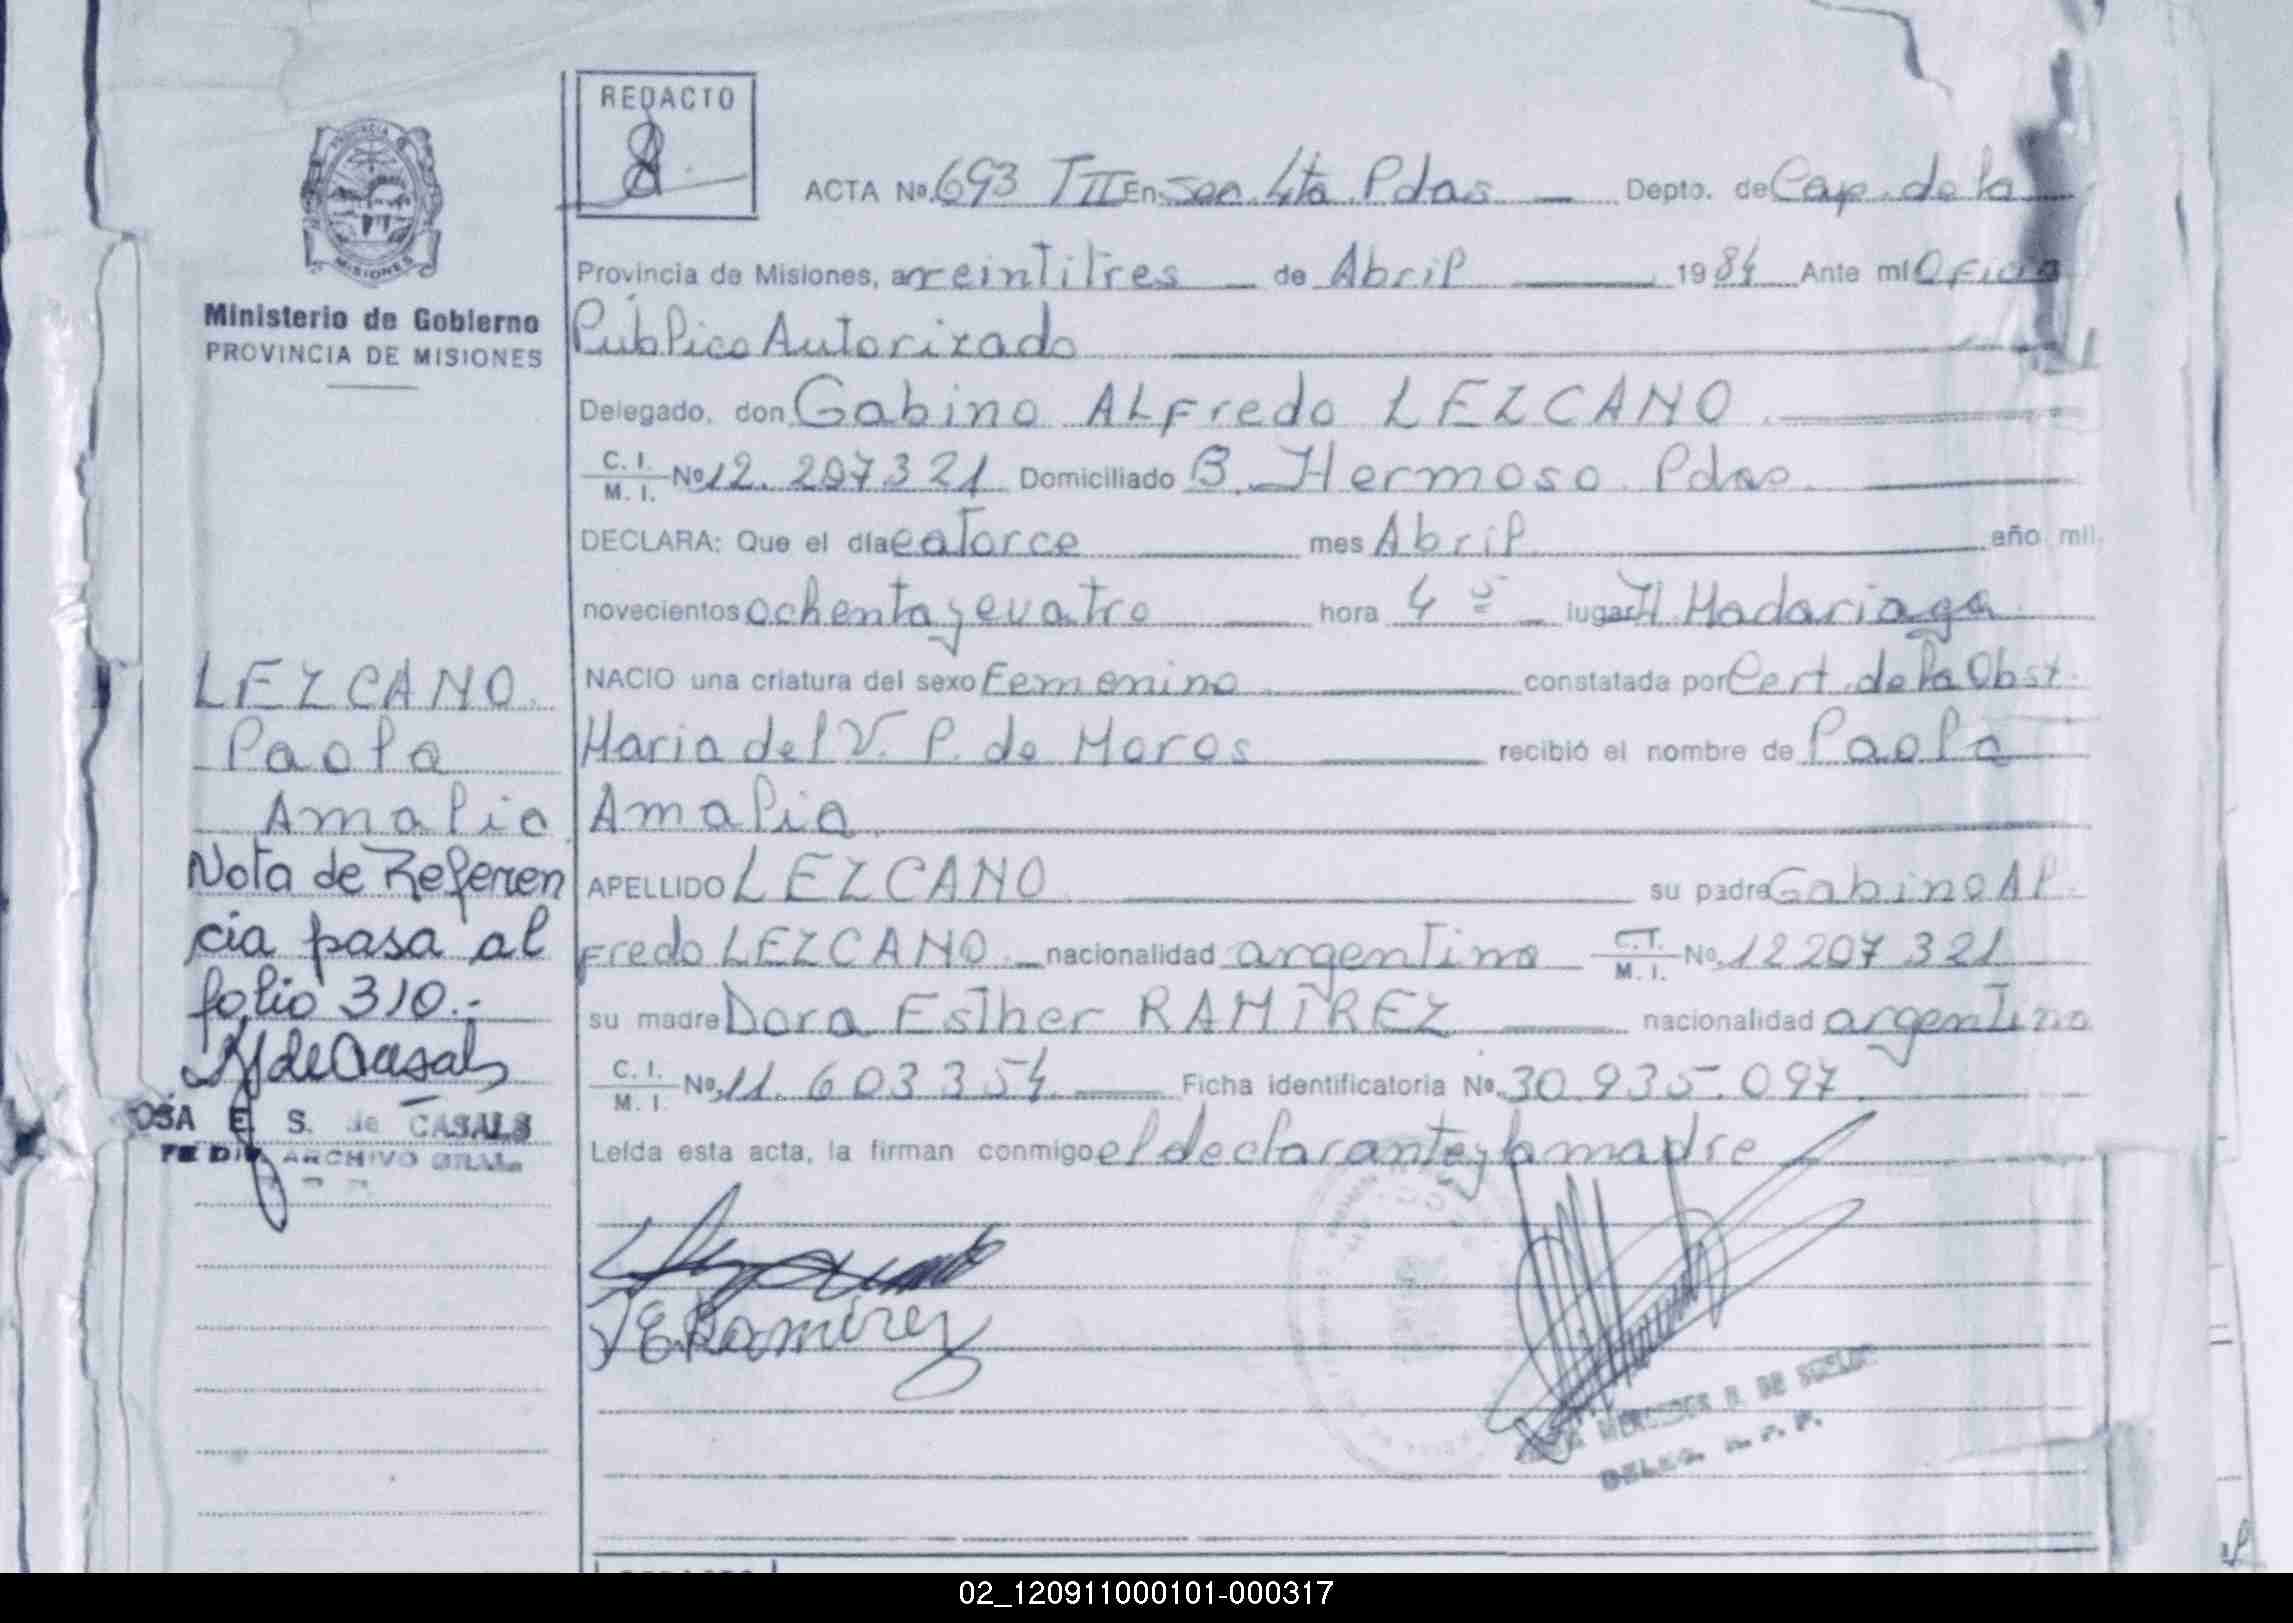 REDACTO
ACTA Nº 693 TII En Sec. 4ta Pdas Depto. de Cap. de la
Provincia de Misiones, a veintitres de Abril 1984 Ante mí Oficia
Público Autorizado
Delegado, don Gabino ALFredo LEZCANO
C. I. M. I. Nº 12.207321 Domiciliado B. Hermoso Pdas.
DECLARA: Que el día catorce mes Abril año mil
novecientos ochenta y cuatro hora 4 lugar H. Madariaga
NACIO una criatura del sexo Femenino constatada por Cert. de la Obst.
Maria del V. P. de Moros recibió el nombre de Paola
Amalia
APELLIDO LEZCANO su padre Gabino Al
Fredo LEZCANO nacionalidad argentino C.I. M. I. Nº 12207321
su madre Dora Esther RAMIREZ nacionalidad argentina
C. I. M. I. Nº 11.603354 Ficha identificatoria Nº 30.935.097
Leída esta acta, la firman conmigo el declarante y la madre
E Ramirez
MERCEDES R. DE
DELEG.
PROVINCIA
MISIONES
Ministerio de Gobierno
PROVINCIA DE MISIONES
LEZCANO
Paola
Amalia
Nota de Referen
cia pasa al
folio 310.-
de Casals
OSA E. S. de CASALS
FE DIV. ARCHIVO GRAL.
02_120911000101-000317